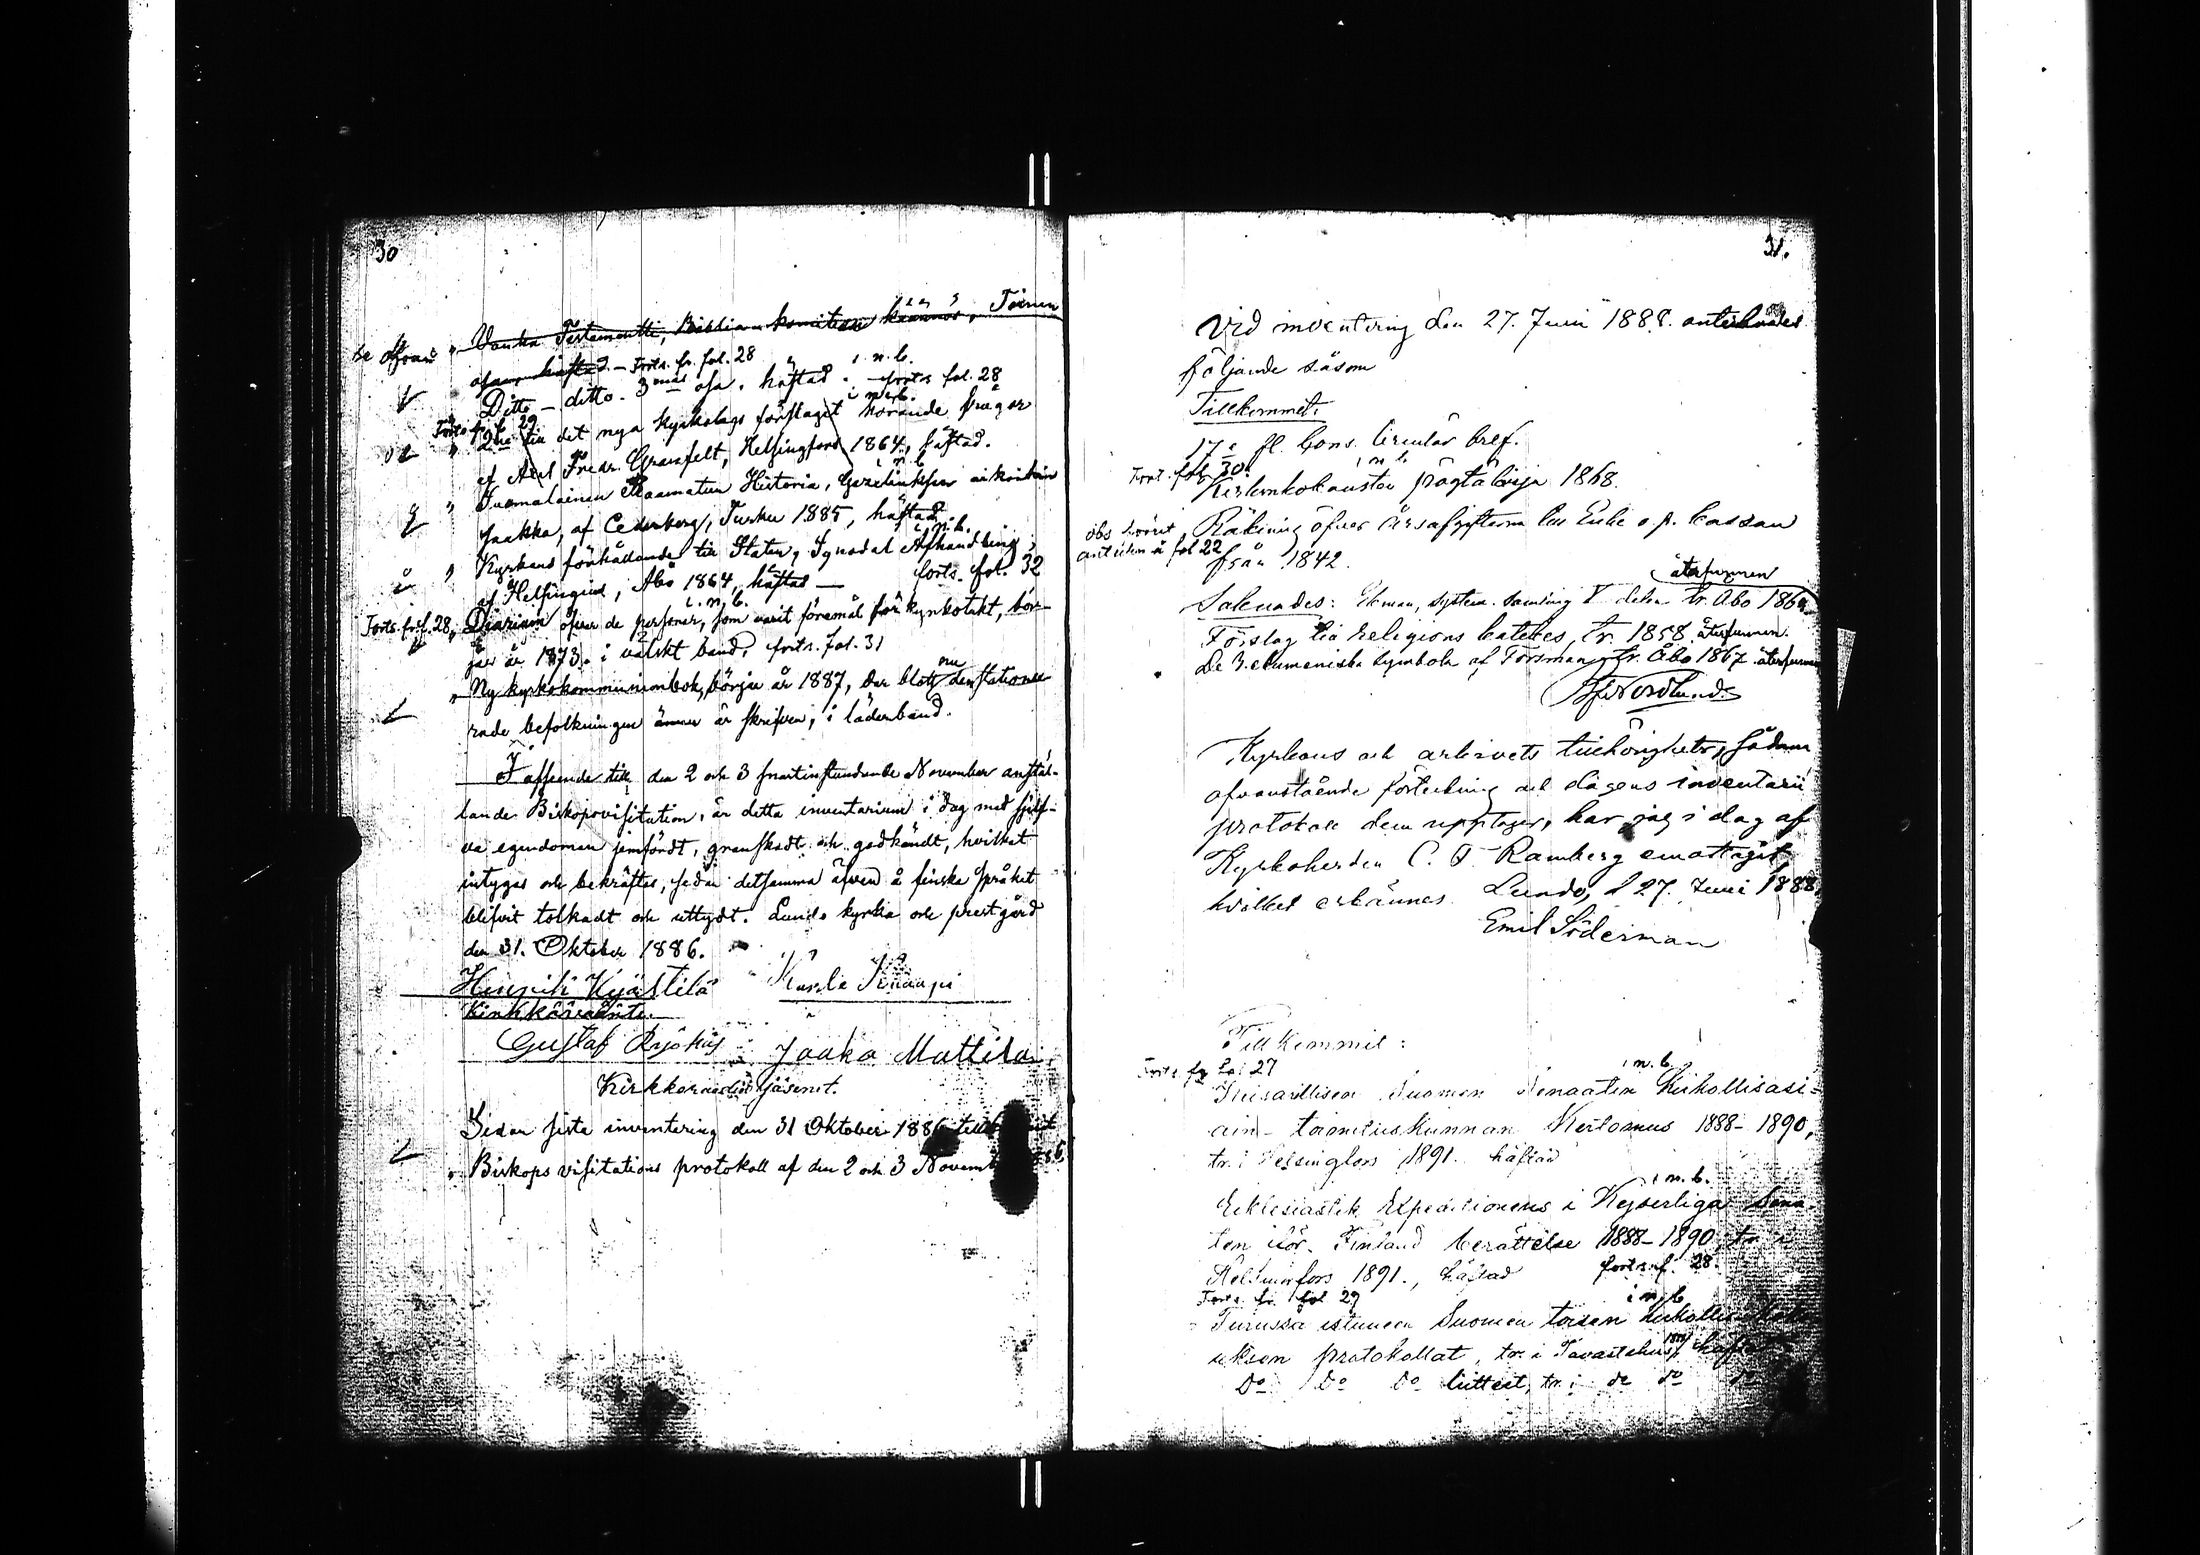 30
se ofvan " Vanha Testamentti, Biblian komitean käännös, Toinen
osa, häftad. — Forts. fr. fol. 28
i. n. b.
Ditto — ditto. 3 osa. häftad. — forts fol. 28
Forts. fr. f. 29
i n. b.
" till det nya kyrkolags förslaget hörande frågor
af Axel Fredr. Granfelt, Helsingfors 1864, häftad.
" Suomalainen Raamatun Historia,
af Cederberg, Turku 1885, häftad
i. n. b.
" Kyrkans förhållande till Staten, Synodal Afhandling,
af Helsingius, Åbo 1864, häftad — forts. fol. 32
i. n. b.
Forts. fr. f. 28, Diarium öfver de personer, som varit föremål för kyrkotukt, bör-
jar år 1873. i valskt band, forts. fol. 31
" Ny kyrkokommunionbok, börjar år 1887, der blott nu den stationæ-
rade befolkningen ännu är skrifven, i läderband.
I afseende till den 2 och 3 nästinstundande November anstäl-
lande Biskopsvisitation, är detta inventarium i dag med sjelf-
va egendomen jemfördt, granskadt och godkändt, hvilket
intygas och bekräftas, sedan detsamma äfven å finska språket
blifvit tolkadt och uttydt. Lundo kyrka och prestgård
den 31. Oktober 1886.
Henrik Kjästilä Karle
Kirkkoväärti.
Gustaf Jaako Mattila
Kirkkoraadin jäsenet.
Sedan sista inventering den 31 Oktober 1886
" Biskops visitations protokoll af den 2 och 3
31.
Vid inventering den 27. Juni 1888. antecknades
följande såsom
Tillkommet:
17 fl. Cons. Circulär bref.
Forts. fol. 30.
i n b.
Kirkonkokousten pöytäkirja 1868.
obs. förut
antecknad å fol 22
Räkning öfver årsafgifterna
från 1842.
återfunnen
Saknades: Ekman, system. samling V delen tr. Åbo
Förslag till religions kateches, tr. 1858. återfunnen.
De 3. ekumeniska symbola af Forsman, tr. Åbo 1867. återfunnen
Nordlund.
Kyrkans och arkivets tillhörigheter, sådana
ofvanstående förteckning och dagens inventarii
protokoll dem upptager, har jag i dag af
Kyrkoherden C. F. Ramberg emottagit,
hvilket erkännes. Lundo, d 27. Juni 1888.
Emil Söderman
Tillkommit:
Forts. fr. fol 27
i n. b.
Keisarillisen Suomen Senaatin Kirkollisasi-
ain- toimituskunnan Kertomus 1888–1890,
tr. i Helsingfors 1891. häftad
i n. b.
Ecklesiastik Expeditionens i Kejserliga Sena-
ten för Finland berättelse 1888–1890, tr. i
Helsingfors 1891., häftad forts. f. 28.
Forts. fr. fol 29
i n. b.
Turussa istuneen Suomen toisen
uksen protokollat, tr. i Tavastehus
Do Do Do liitteet, tr. i do do